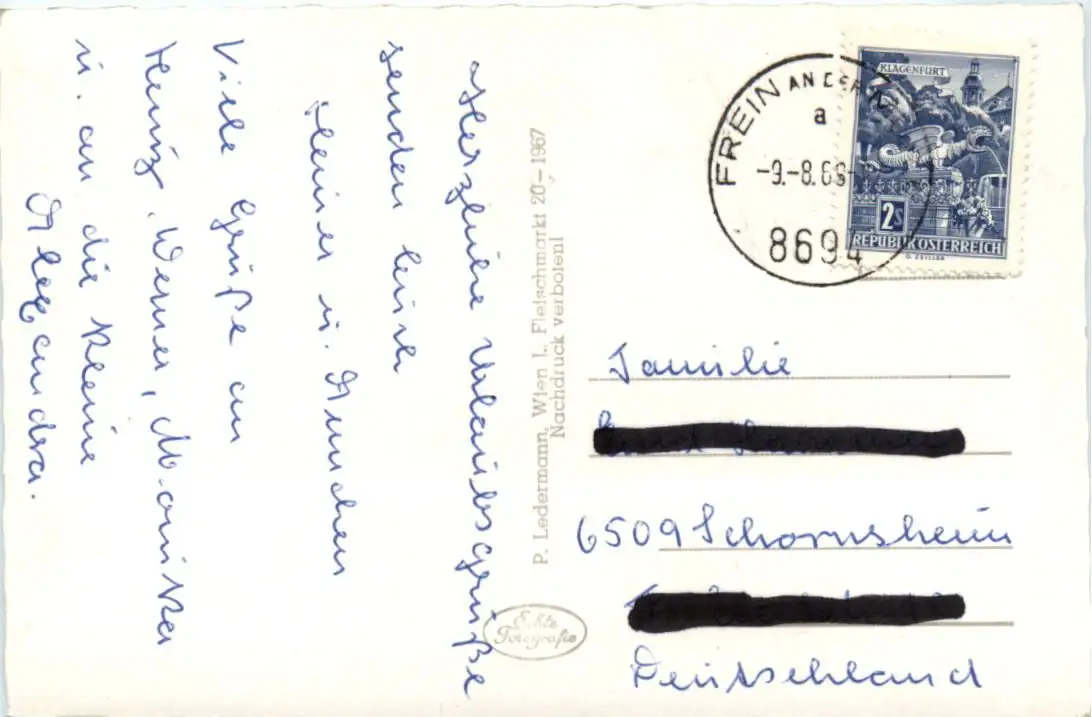 Herzliche Urlaubsgrüße
senden Euch
Heiner u. Annchen
Viele Grüße an
Heinz, Werner, Monika
u. an die kleine
Alexandra.
P. Ledermann, Wien I., Fleischmarkt 20 – 1967
Nachdruck verboten!
Echte
Fotografie
FREIN AN DER
a
-9.-8.69-
8694
KLAGENFURT
2S
REPUBLIK ÖSTERREICH
Familie
6509 Schornsheim
Deutschland